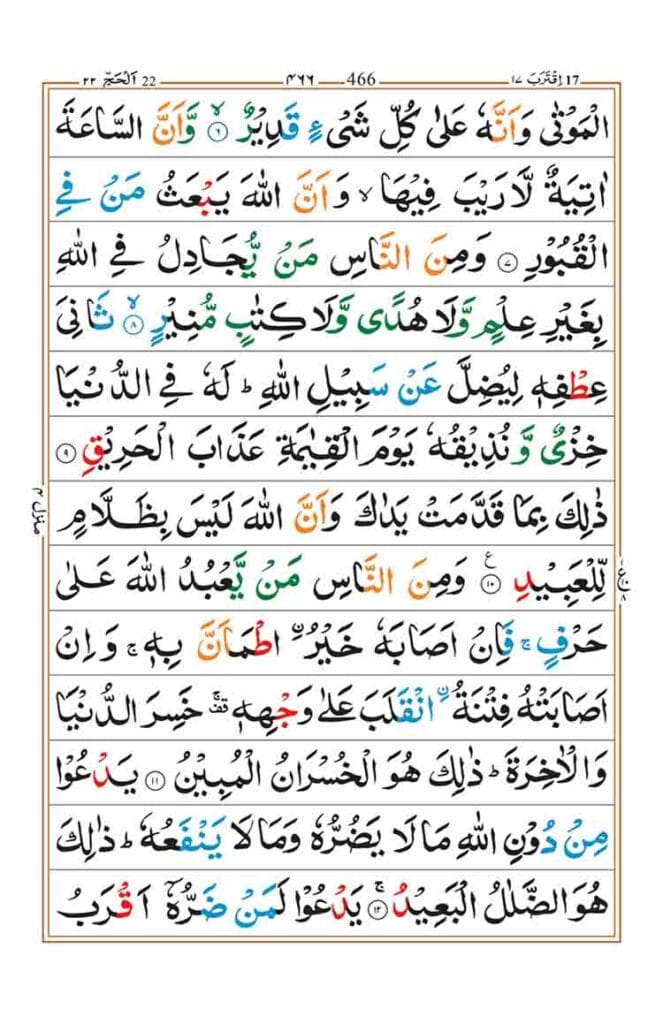 22 اَلْحَجّ ٢٢ ٤٦٦ 466 17 اِقْتَرَبَ ١٧
الْمَوْتٰى وَاَنَّهٗ عَلٰى كُلِّ شَیْءٍ قَدِیْرٌ ۙ﴿٦﴾ وَّاَنَّ السَّاعَةَ
اٰتِیَةٌ لَّا رَیْبَ فِیْهَا ۙ وَ اَنَّ اللّٰهَ یَبْعَثُ مَنْ فِی
الْقُبُوْرِ ﴿٧﴾ وَمِنَ النَّاسِ مَنْ یُّجَادِلُ فِی اللّٰهِ
بِغَیْرِ عِلْمٍ وَّلَا هُدًى وَّلَا كِتٰبٍ مُّنِیْرٍ ۙ﴿٨﴾ ثَانِیَ
عِطْفِهٖ لِیُضِلَّ عَنْ سَبِیْلِ اللّٰهِ ؕ لَهٗ فِی الدُّنْیَا
خِزْیٌ وَّ نُذِیْقُهٗ یَوْمَ الْقِیٰمَةِ عَذَابَ الْحَرِیْقِ ﴿٩﴾
ذٰلِكَ بِمَا قَدَّمَتْ یَدٰكَ وَاَنَّ اللّٰهَ لَیْسَ بِظَلَّامٍ
لِّلْعَبِیْدِ ﴿١٠﴾ ع وَمِنَ النَّاسِ مَنْ یَّعْبُدُ اللّٰهَ عَلٰى
حَرْفٍ ۚ فَاِنْ اَصَابَهٗ خَیْرُ ۨ اطْمَاَنَّ بِهٖ ۚ وَ اِنْ
اَصَابَتْهُ فِتْنَةُ ۨ انْقَلَبَ عَلٰى وَجْهِهٖ قف خَسِرَ الدُّنْیَا
وَالْاٰخِرَةَ ؕ ذٰلِكَ هُوَ الْخُسْرَانُ الْمُبِیْنُ ﴿١١﴾ یَدْعُوْا
مِنْ دُوْنِ اللّٰهِ مَا لَا یَضُرُّهٗ وَمَا لَا یَنْفَعُهٗ ؕ ذٰلِكَ
هُوَ الضَّلٰلُ الْبَعِیْدُ ۚ﴿١٢﴾ یَدْعُوْا لَمَنْ ضَرُّهٗۤ اَقْرَبُ
منزل ٤